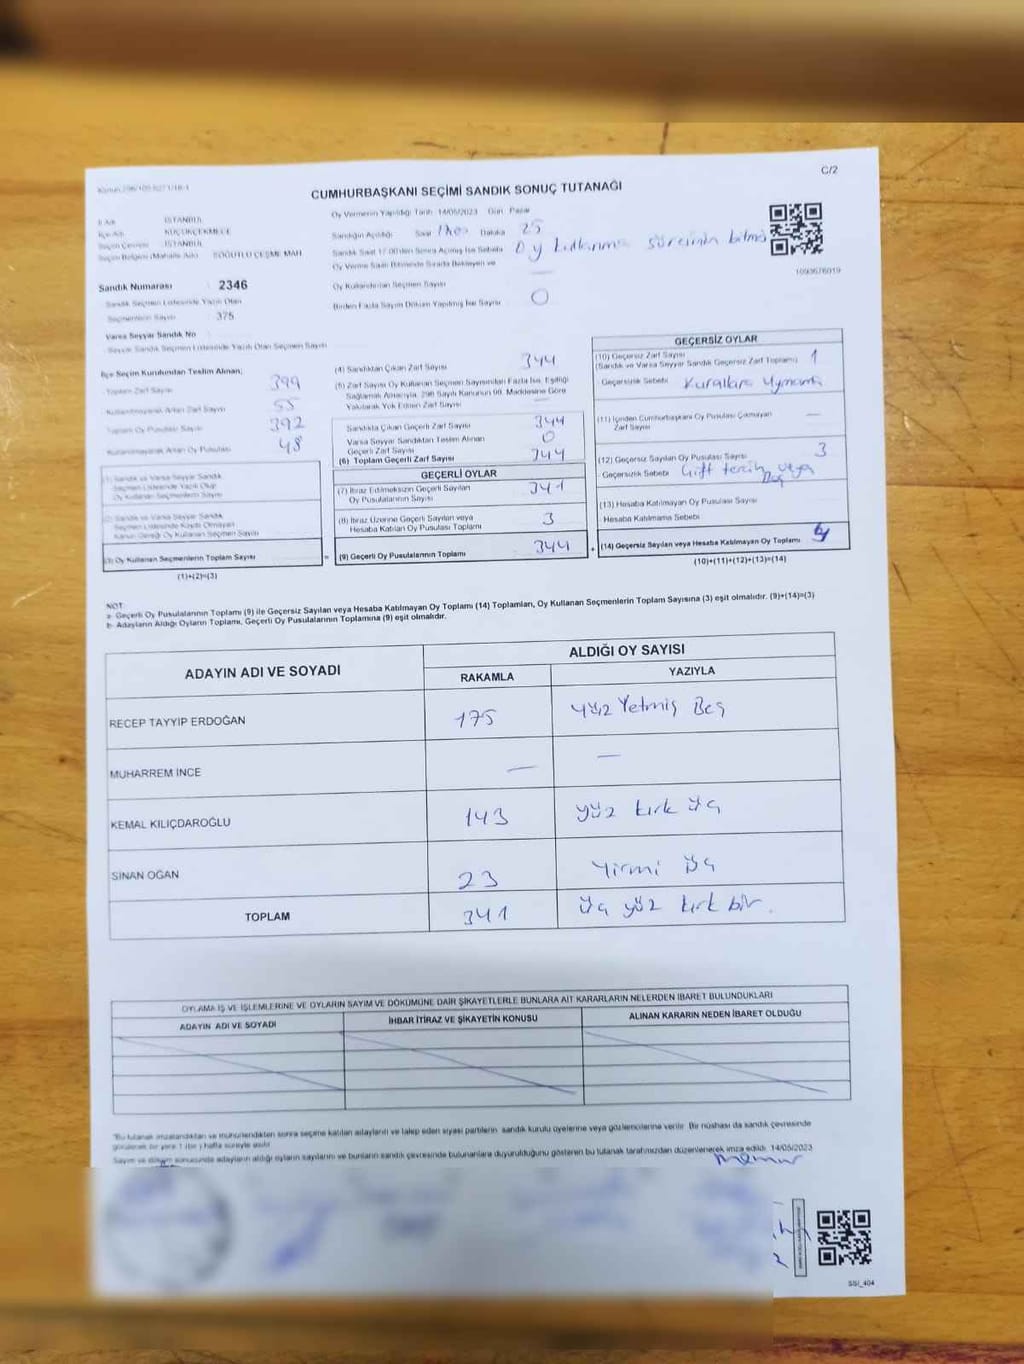 C/2
CUMHURBAŞKANI SEÇİMİ SANDIK SONUÇ TUTANAĞI
İl Adı İSTANBUL
İlçe Adı KÜÇÜKÇEKMECE
Seçim Çevresi İSTANBUL
Seçim Bölgesi (Mahalle Adı) SÖĞÜTLÜ ÇEŞME MAH
Sandık Numarası 2346
Sandık Seçmen Listesinde Yazılı Olan
Seçmenlerin Sayısı 375
Varsa Seyyar Sandık No
Seyyar Sandık Seçmen Listesinde Yazılı Olan Seçmen Sayısı
Oy Vermenin Yapıldığı Tarih 14/05/2023 Gün Pazar
Sandığın Açıldığı Saat Dakika 25
Sandık Saat 17.00'den Sonra Açılmış İse Sebebi Oy kullanma süresinin bitmesi
Oy Verme Saati Bitiminde Sırada Bekleyen ve
Oy Kullandırılan Seçmen Sayısı —
Birden Fazla Sayım Döküm Yapılmış İse Sayısı 0
1093676019
İlçe Seçim Kurulundan Teslim Alınan;
Toplam Zarf Sayısı 399
Kullanılmayarak Artan Zarf Sayısı 55
Toplam Oy Pusulası Sayısı 392
Kullanılmayarak Artan Oy Pusulası 48
(1) Sandık ve Varsa Seyyar Sandık
Seçmen Listesinde Yazılı Olup
Oy Kullanan Seçmenlerin Sayısı
(2) Sandık ve Varsa Seyyar Sandık
Seçmen Listesinde Kayıtlı Olmayan
Kanun Gereği Oy Kullanan Seçmen Sayısı
(3) Oy Kullanan Seçmenlerin Toplam Sayısı =
(1)+(2)=(3)
(4) Sandıktan Çıkan Zarf Sayısı 344
(5) Zarf Sayısı Oy Kullanan Seçmen Sayısından Fazla İse, Eşitliği
Sağlamak Amacıyla, 298 Sayılı Kanunun 98. Maddesine Göre
Yakılarak Yok Edilen Zarf Sayısı —
Sandıkta Çıkan Geçerli Zarf Sayısı 344
Varsa Seyyar Sandıktan Teslim Alınan
Geçerli Zarf Sayısı 0
(6) Toplam Geçerli Zarf Sayısı 344
GEÇERLİ OYLAR
(7) İtiraz Edilmeksizin Geçerli Sayılan
Oy Pusulalarının Sayısı 341
(8) İtiraz Üzerine Geçerli Sayılan veya
Hesaba Katılan Oy Pusulası Toplamı 3
(9) Geçerli Oy Pusulalarının Toplamı 344 +
GEÇERSİZ OYLAR
(10) Geçersiz Zarf Sayısı
(Sandık ve Varsa Seyyar Sandık Geçersiz Zarf Toplamı) 1
Geçersizlik Sebebi Kurallara Uymama
(11) İçinden Cumhurbaşkanı Oy Pusulası Çıkmayan
Zarf Sayısı —
(12) Geçersiz Sayılan Oy Pusulası Sayısı 3
Geçersizlik Sebebi Çift tercih veya Boş
(13) Hesaba Katılmayan Oy Pusulası Sayısı
Hesaba Katılmama Sebebi
(14) Geçersiz Sayılan veya Hesaba Katılmayan Oy Toplamı
(10)+(11)+(12)+(13)=(14)
NOT
a- Geçerli Oy Pusulalarının Toplamı (9) ile Geçersiz Sayılan veya Hesaba Katılmayan Oy Toplamı (14) Toplamları, Oy Kullanan Seçmenlerin Toplam Sayısına (3) eşit olmalıdır. (9)+(14)=(3)
b- Adayların Aldığı Oyların Toplamı, Geçerli Oy Pusulalarının Toplamına (9) eşit olmalıdır.
ADAYIN ADI VE SOYADI ALDIĞI OY SAYISI
RAKAMLA YAZIYLA
RECEP TAYYIP ERDOĞAN 175 yüz Yetmiş Beş
MUHARREM İNCE — —
KEMAL KILIÇDAROĞLU 143 yüz kırk üç
SİNAN OĞAN 23 Yirmi üç
TOPLAM 341 üç yüz kırk bir.
OYLAMA İŞ VE İŞLEMLERİNE VE OYLARIN SAYIM VE DÖKÜMÜNE DAİR ŞİKAYETLERLE BUNLARA AİT KARARLARIN NELERDEN İBARET BULUNDUKLARI
ADAYIN ADI VE SOYADI İHBAR İTİRAZ VE ŞİKAYETİN KONUSU ALINAN KARARIN NEDEN İBARET OLDUĞU
*Bu tutanak imzalandıktan ve mühürlendikten sonra seçime katılan adayların ve talep eden siyasi partilerin sandık kurulu üyelerine veya gözlemcilerine verilir. Bir nüshası da sandık çevresinde
görülecek bir yere 1 (bir) hafta süreyle asılır.
Sayım ve döküm sonucunda adayların aldığı oyların sayılarını ve bunların sandık çevresinde bulunanlara duyurulduğunu gösteren bu tutanak tarafımızdan düzenlenerek imza edildi. 14/05/2023
Memur
SSI_404